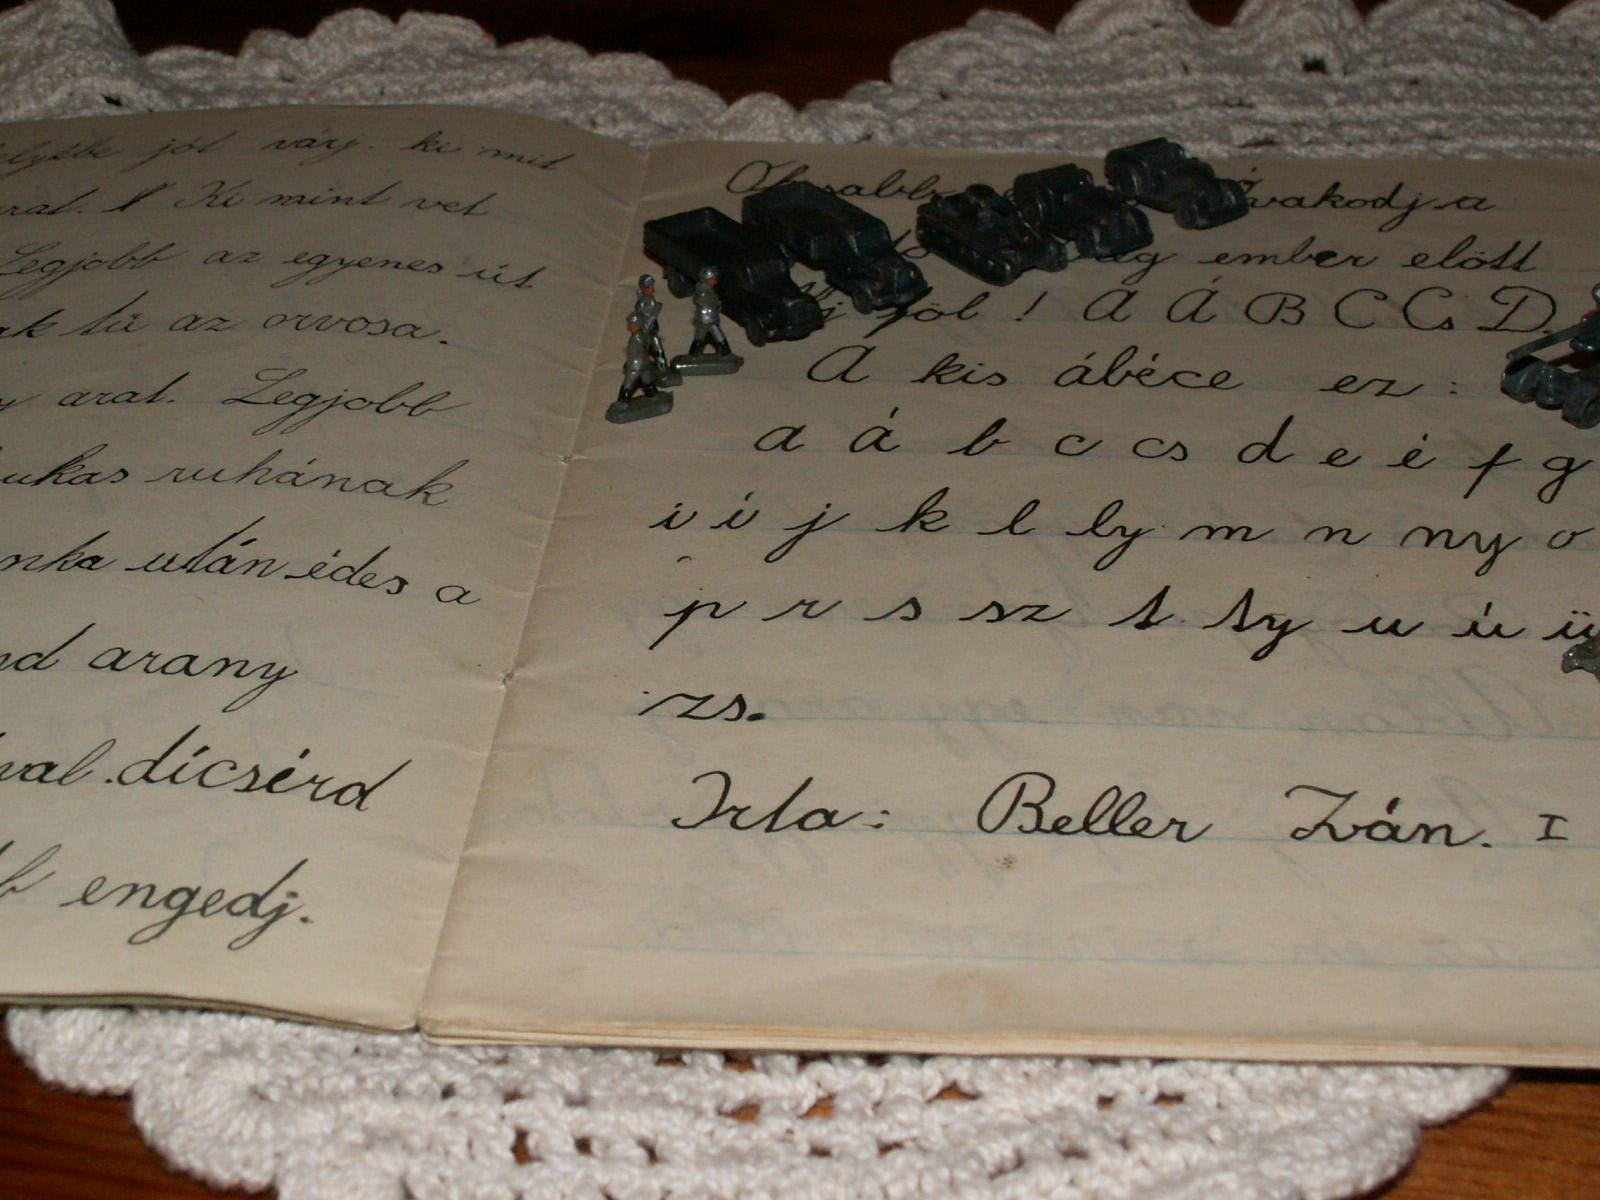 jót várj. ki mit
arat. Ki mint vet
Legjobb az egyenes út.
tű az orvosa.
arat. Legjobb
lukas ruhának
után édes a
arany
dícsérd
engedj.
óvakodj a
ember elött
föl! A Á B C Cs D
A kis ábéce ez:
a á b c cs d e é f g
i í j k l ly m n ny o
p r s sz t ty u ú ü
zs.
Irta: Beller Iván. I